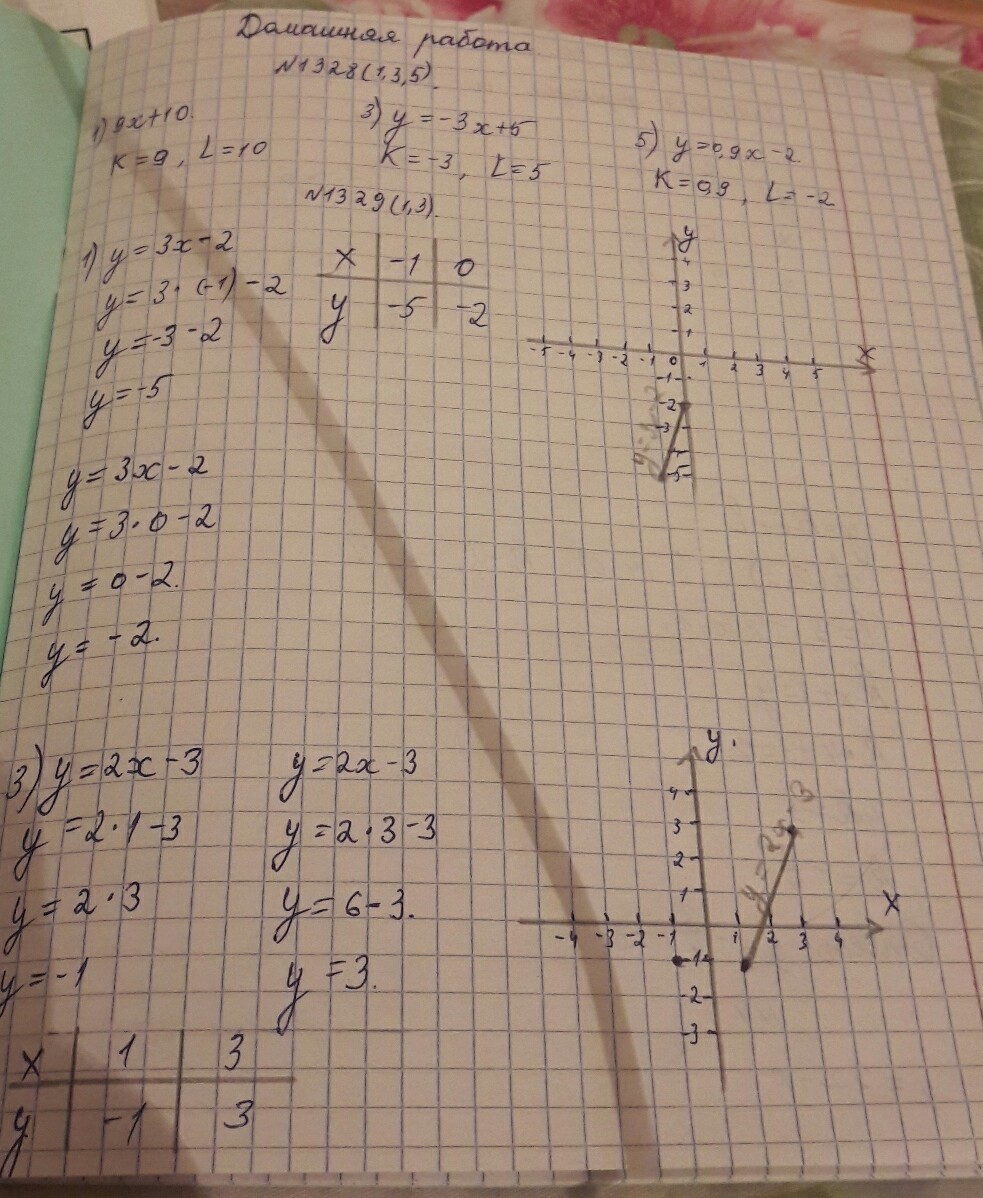 Домашняя работа
N1328(1,3,5).
1) 9x+10.
K=9, L=10
3) y=-3x+5
K=-3, L=5
5) y=0,9x-2
K=0,9, L=-2
N1329(1,3).
1) y=3x-2
y=3·(-1)-2
y=-3-2
y=-5
x -1 0
y -5 -2
y
4
3
2
1
-5 -4 -3 -2 -1 0 1 2 3 4 5 x
-1
-2
-3
-5
y=3x-2
y=3·0-2
y=0-2.
y=-2.
3) y=2x-3
y=2·1-3
y=2·3
y=-1
y=2x-3
y=2·3-3
y=6-3.
y=3.
x 1 3
y -1 3
y.
4
3
2
1
-4 -3 -2 -1 1 2 3 4 x
-1
-2
-3
y=2x-3